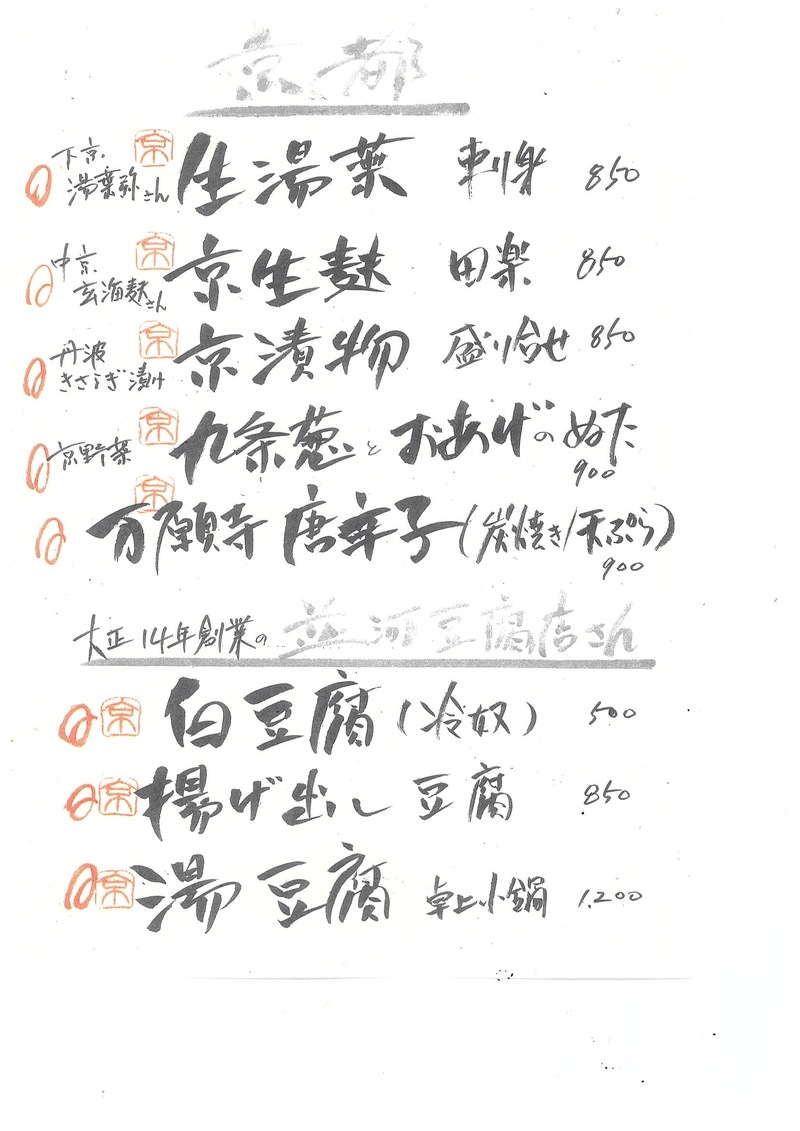 京都
下京 湯葉弥さん 京 生湯葉 刺身 850
中京 玄海麩さん 京 京生麩 田楽 850
丹波 きさらぎ漬け 京 京漬物 盛り合せ 850
京野菜 京 九条葱とおあげのぬた 900
京 万願寺唐辛子(炭焼き/天ぷら) 900
大正14年創業の 並河豆腐店さん
京 白豆腐(冷奴) 500
京 揚げ出し豆腐 850
京 湯豆腐 卓上小鍋 1,200